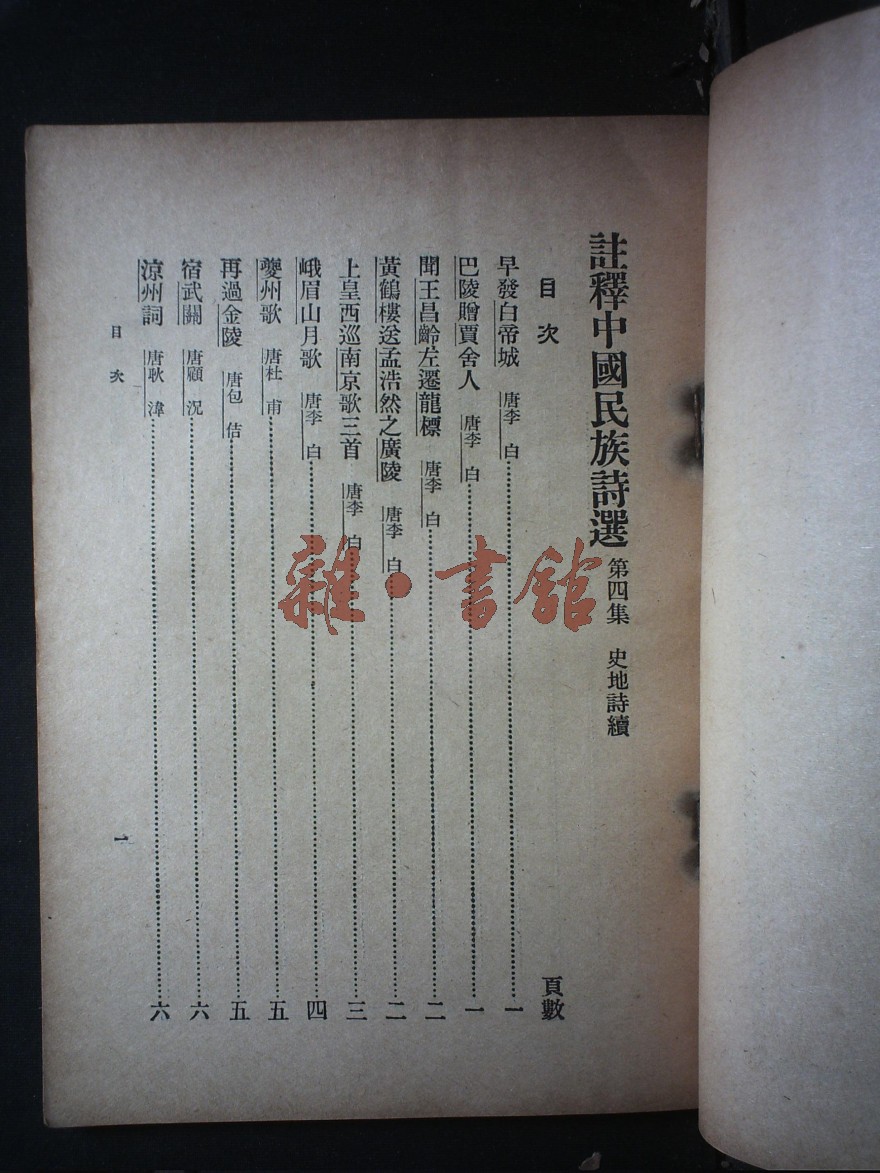 註釋中國民族詩選 第四集 史地詩續
目次 頁數
早發白帝城 唐李白 一
巴陵贈賈舍人 唐李白 一
聞王昌齡左遷龍標 唐李白 二
黃鶴樓送孟浩然之廣陵 唐李白 二
上皇西巡南京歌三首 唐李白 三
峨眉山月歌 唐李白 四
夔州歌 唐杜甫 五
再過金陵 唐包佶 五
宿武關 唐顧況 六
涼州詞 唐耿湋 六
目次 一
雜·書館